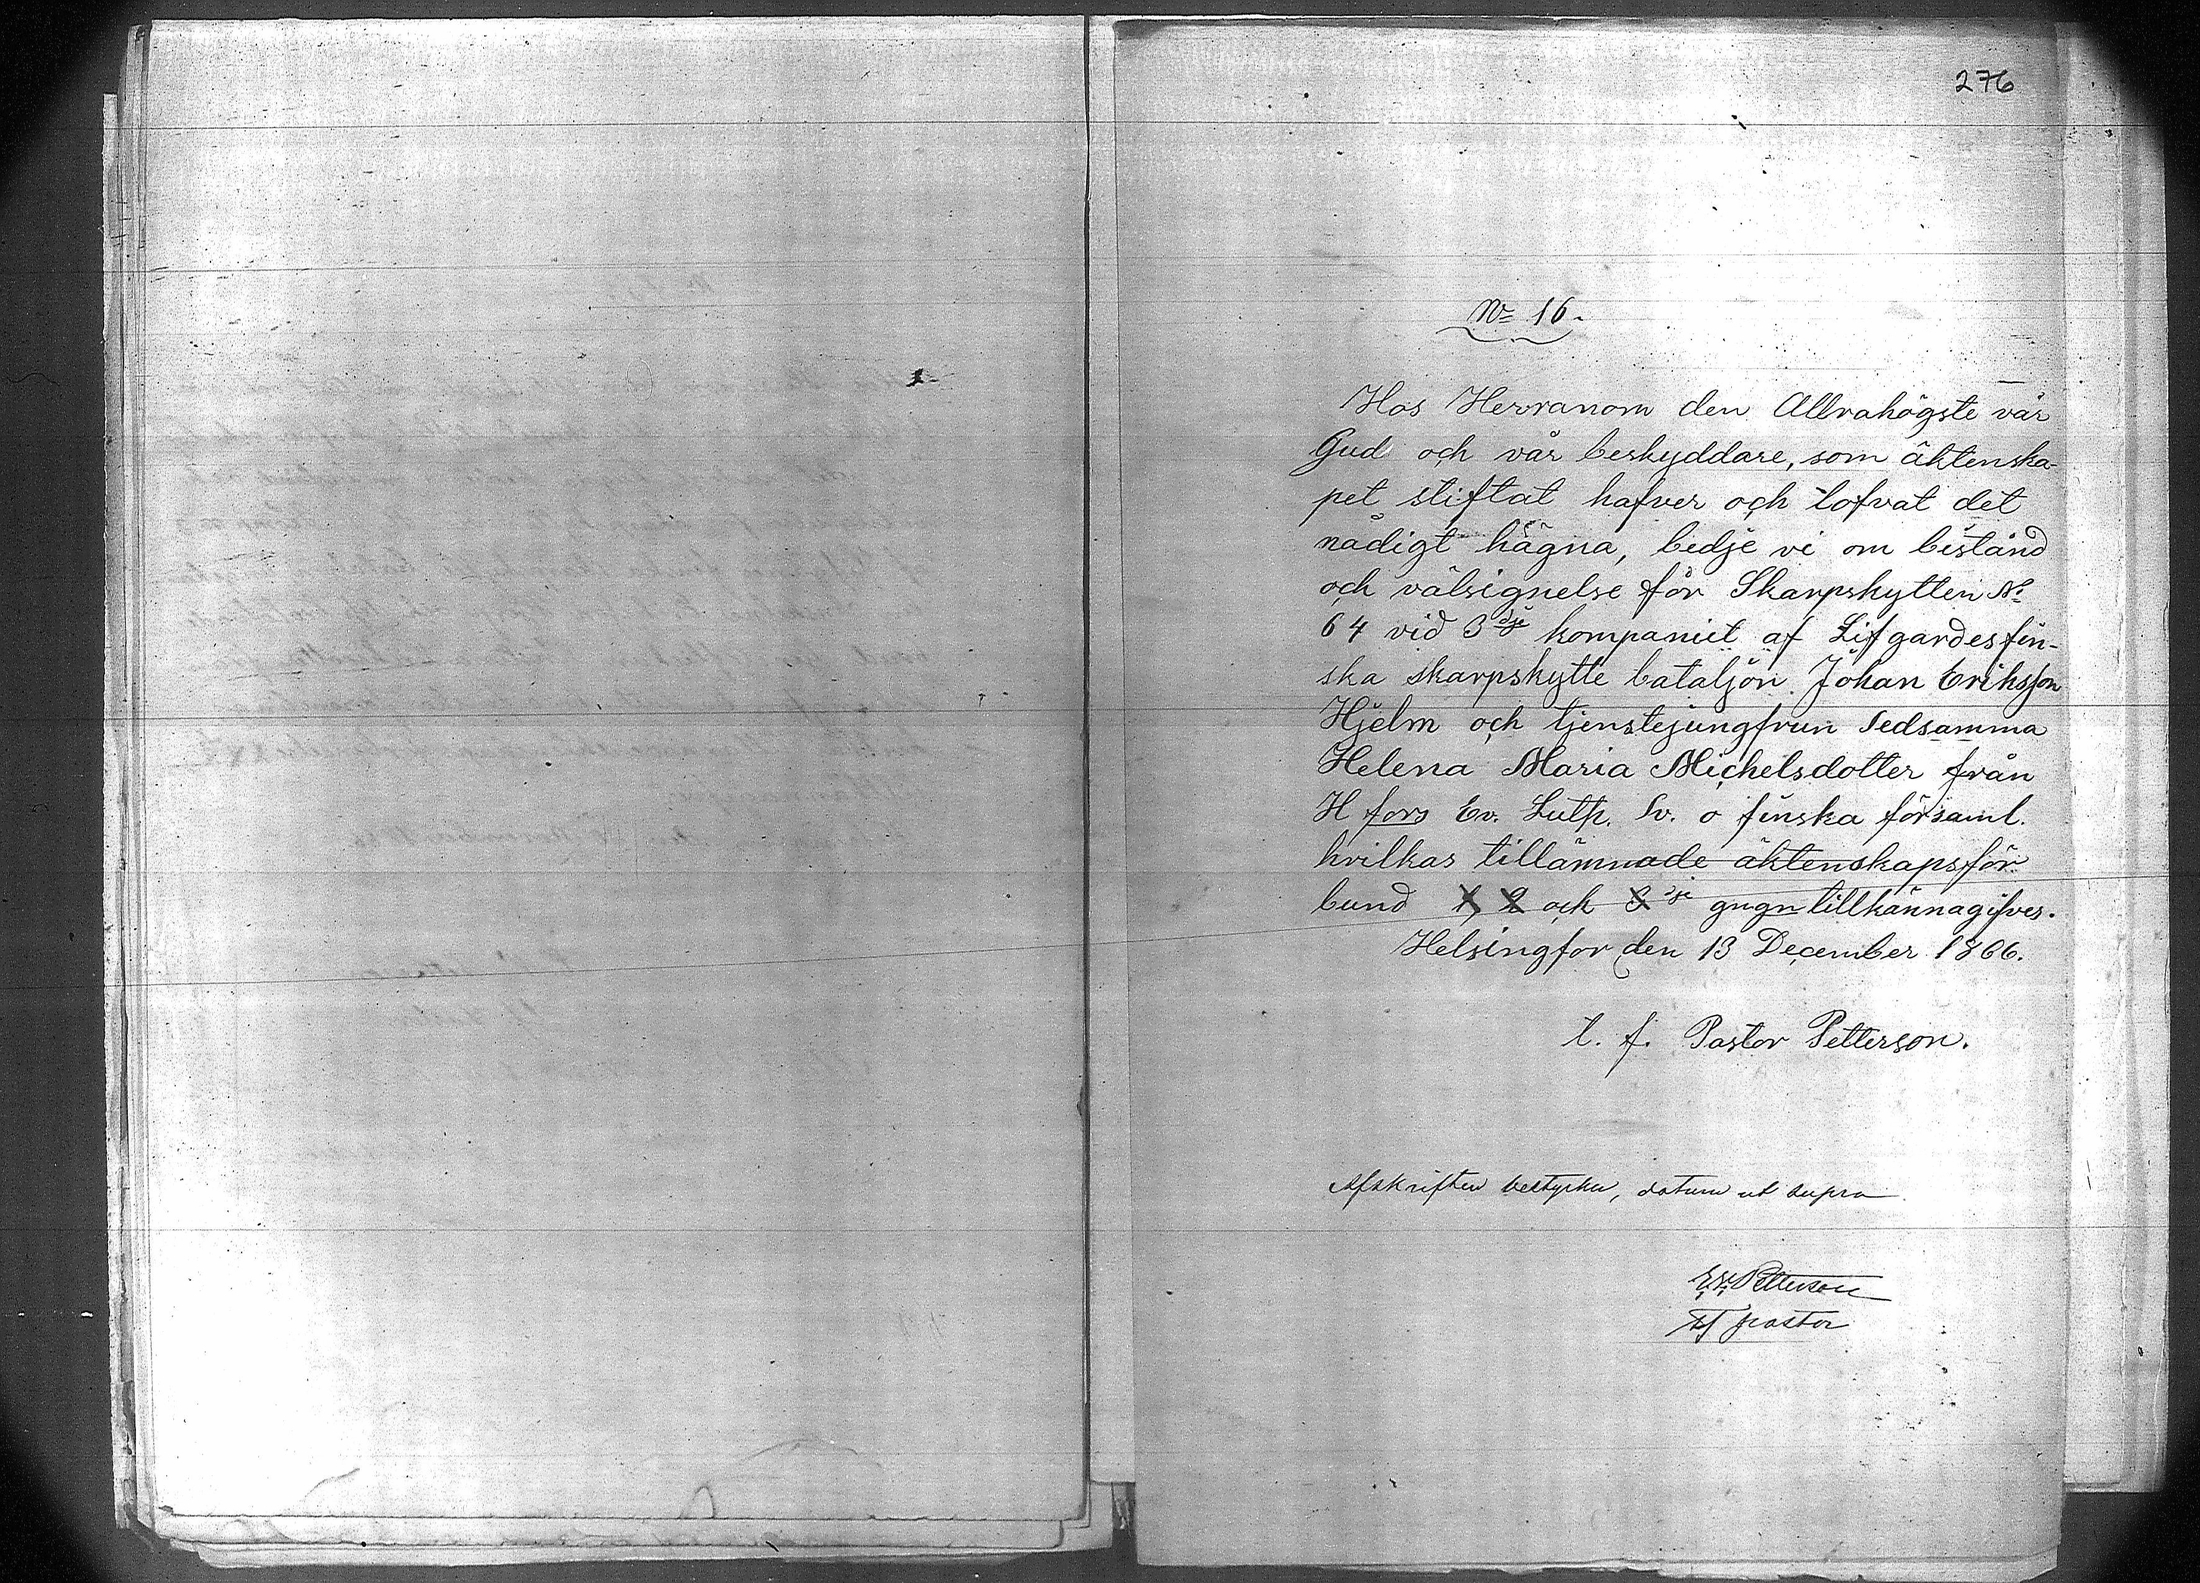 276
No 16.
Hos Herranom den Allrahögste vår
Gud och vår beskyddare, som äktenska-
pet stiftat hafver och lofvat det
nådigt hägna, bedje vi om bistånd
och välsignelse för Skarpskytten No
64 vid 3dje kompaniet af Lifgardes fin-
ska skarpskytte bataljon Johan Eriksson
Hjelm och tjenstejungfrun Sedsamma
Helena Maria Michelsdotter från
H fors Ev. Luth. Sv. o finska församl.
hvilkas tillämnade äktenskapsför-
bund 1, 2 och 3dje gngn tillkännagifves.
Helsingfor den 13 December 1866.
t. f. Pastor Petterson.
Afskriften bestyrker, datum ut supra
Petterson
tf pastor